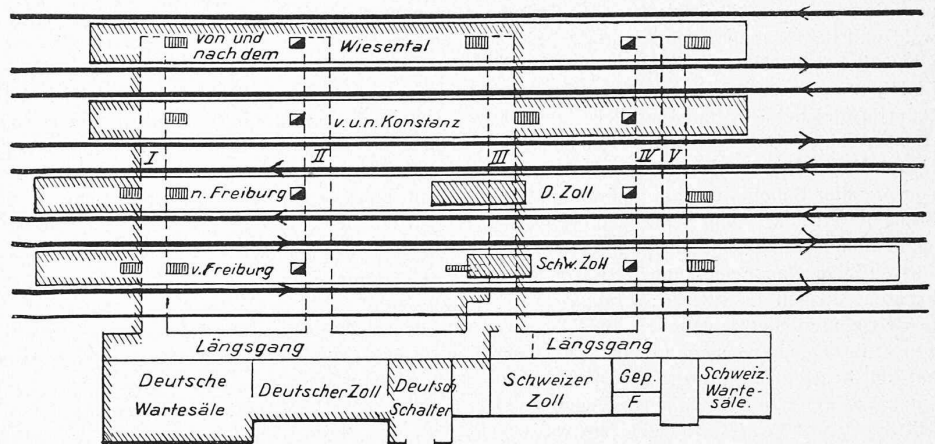 von und
nach dem
Wiesental
v.u.n. Konstanz
I
II
III
IV
V
n. Freiburg
D. Zoll
v. Freiburg
Schw. Zoll
Längsgang
Längsgang
Deutsche
Wartesäle
Deutscher Zoll
Deutsch
Schalter
Schweizer
Zoll
Gep.
F
Schweiz.
Warte-
säle.